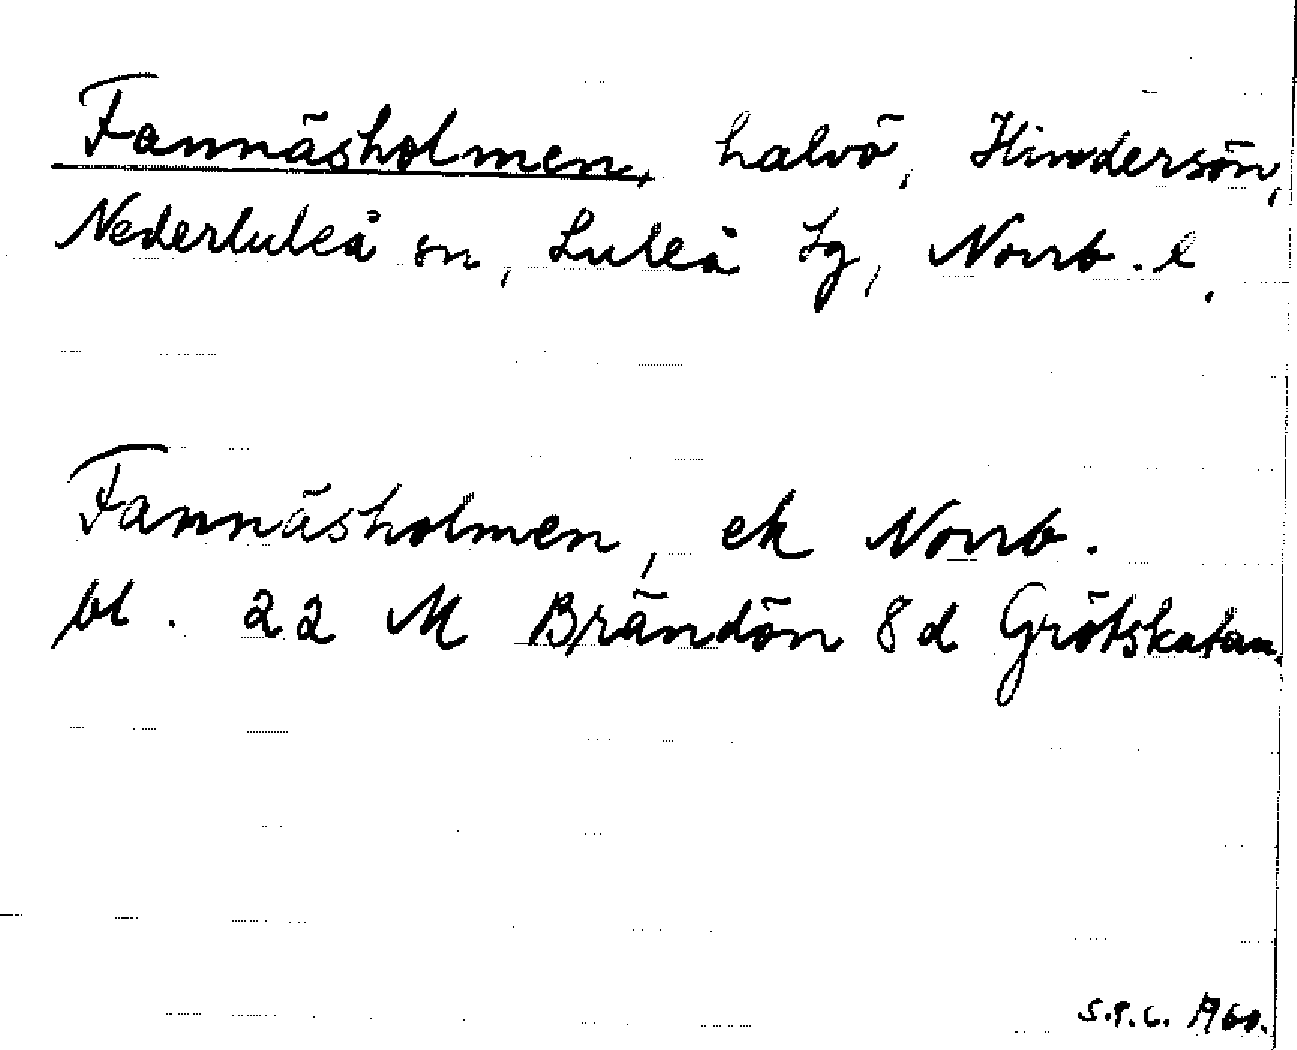 Fannäsholmen, halvö, Hindersön,
Nederluleå sn, Luleå tg, Norrb. l.
Fannäsholmen, ek Norrb.
bl. 22 M Brändön 8d Grötskatan.
1960.